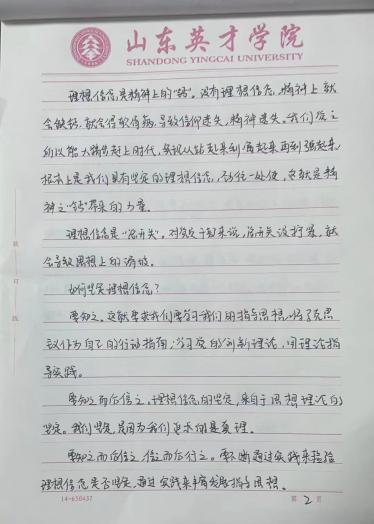 山东英才学院
SHANDONG YINGCAI UNIVERSITY
理想信念是精神上的“钙”。没有理想信念，精神上就
会缺钙，就会得软骨病，导致信仰迷失，精神迷失。我们党之
所以能大踏步赶上时代，实现从站起来到富起来再到强起来，
根本上是我们具有坚定的理想信念，这就是精
神之“钙”带来的力量。
理想信念是“总开关”。对党员干部来说，总开关没拧紧，就
会导致思想上的滑坡。
如何坚定理想信念？
要知之。这就要求我们要学习我们的指导思想，将马克思
主义作为自己的行动指南，学习党的创新理论，用理论指
导实践。
要知之而后信之。理想信念的坚定，来自于思想理论的
坚定。我们坚定是因为我们追求的是真理。
要知之而后信之，信之而后行之。要不断通过实践来检验
理想信念是否坚定，通过实践来丰富发展指导思想。
装
订
线
14-650437
第 2 页